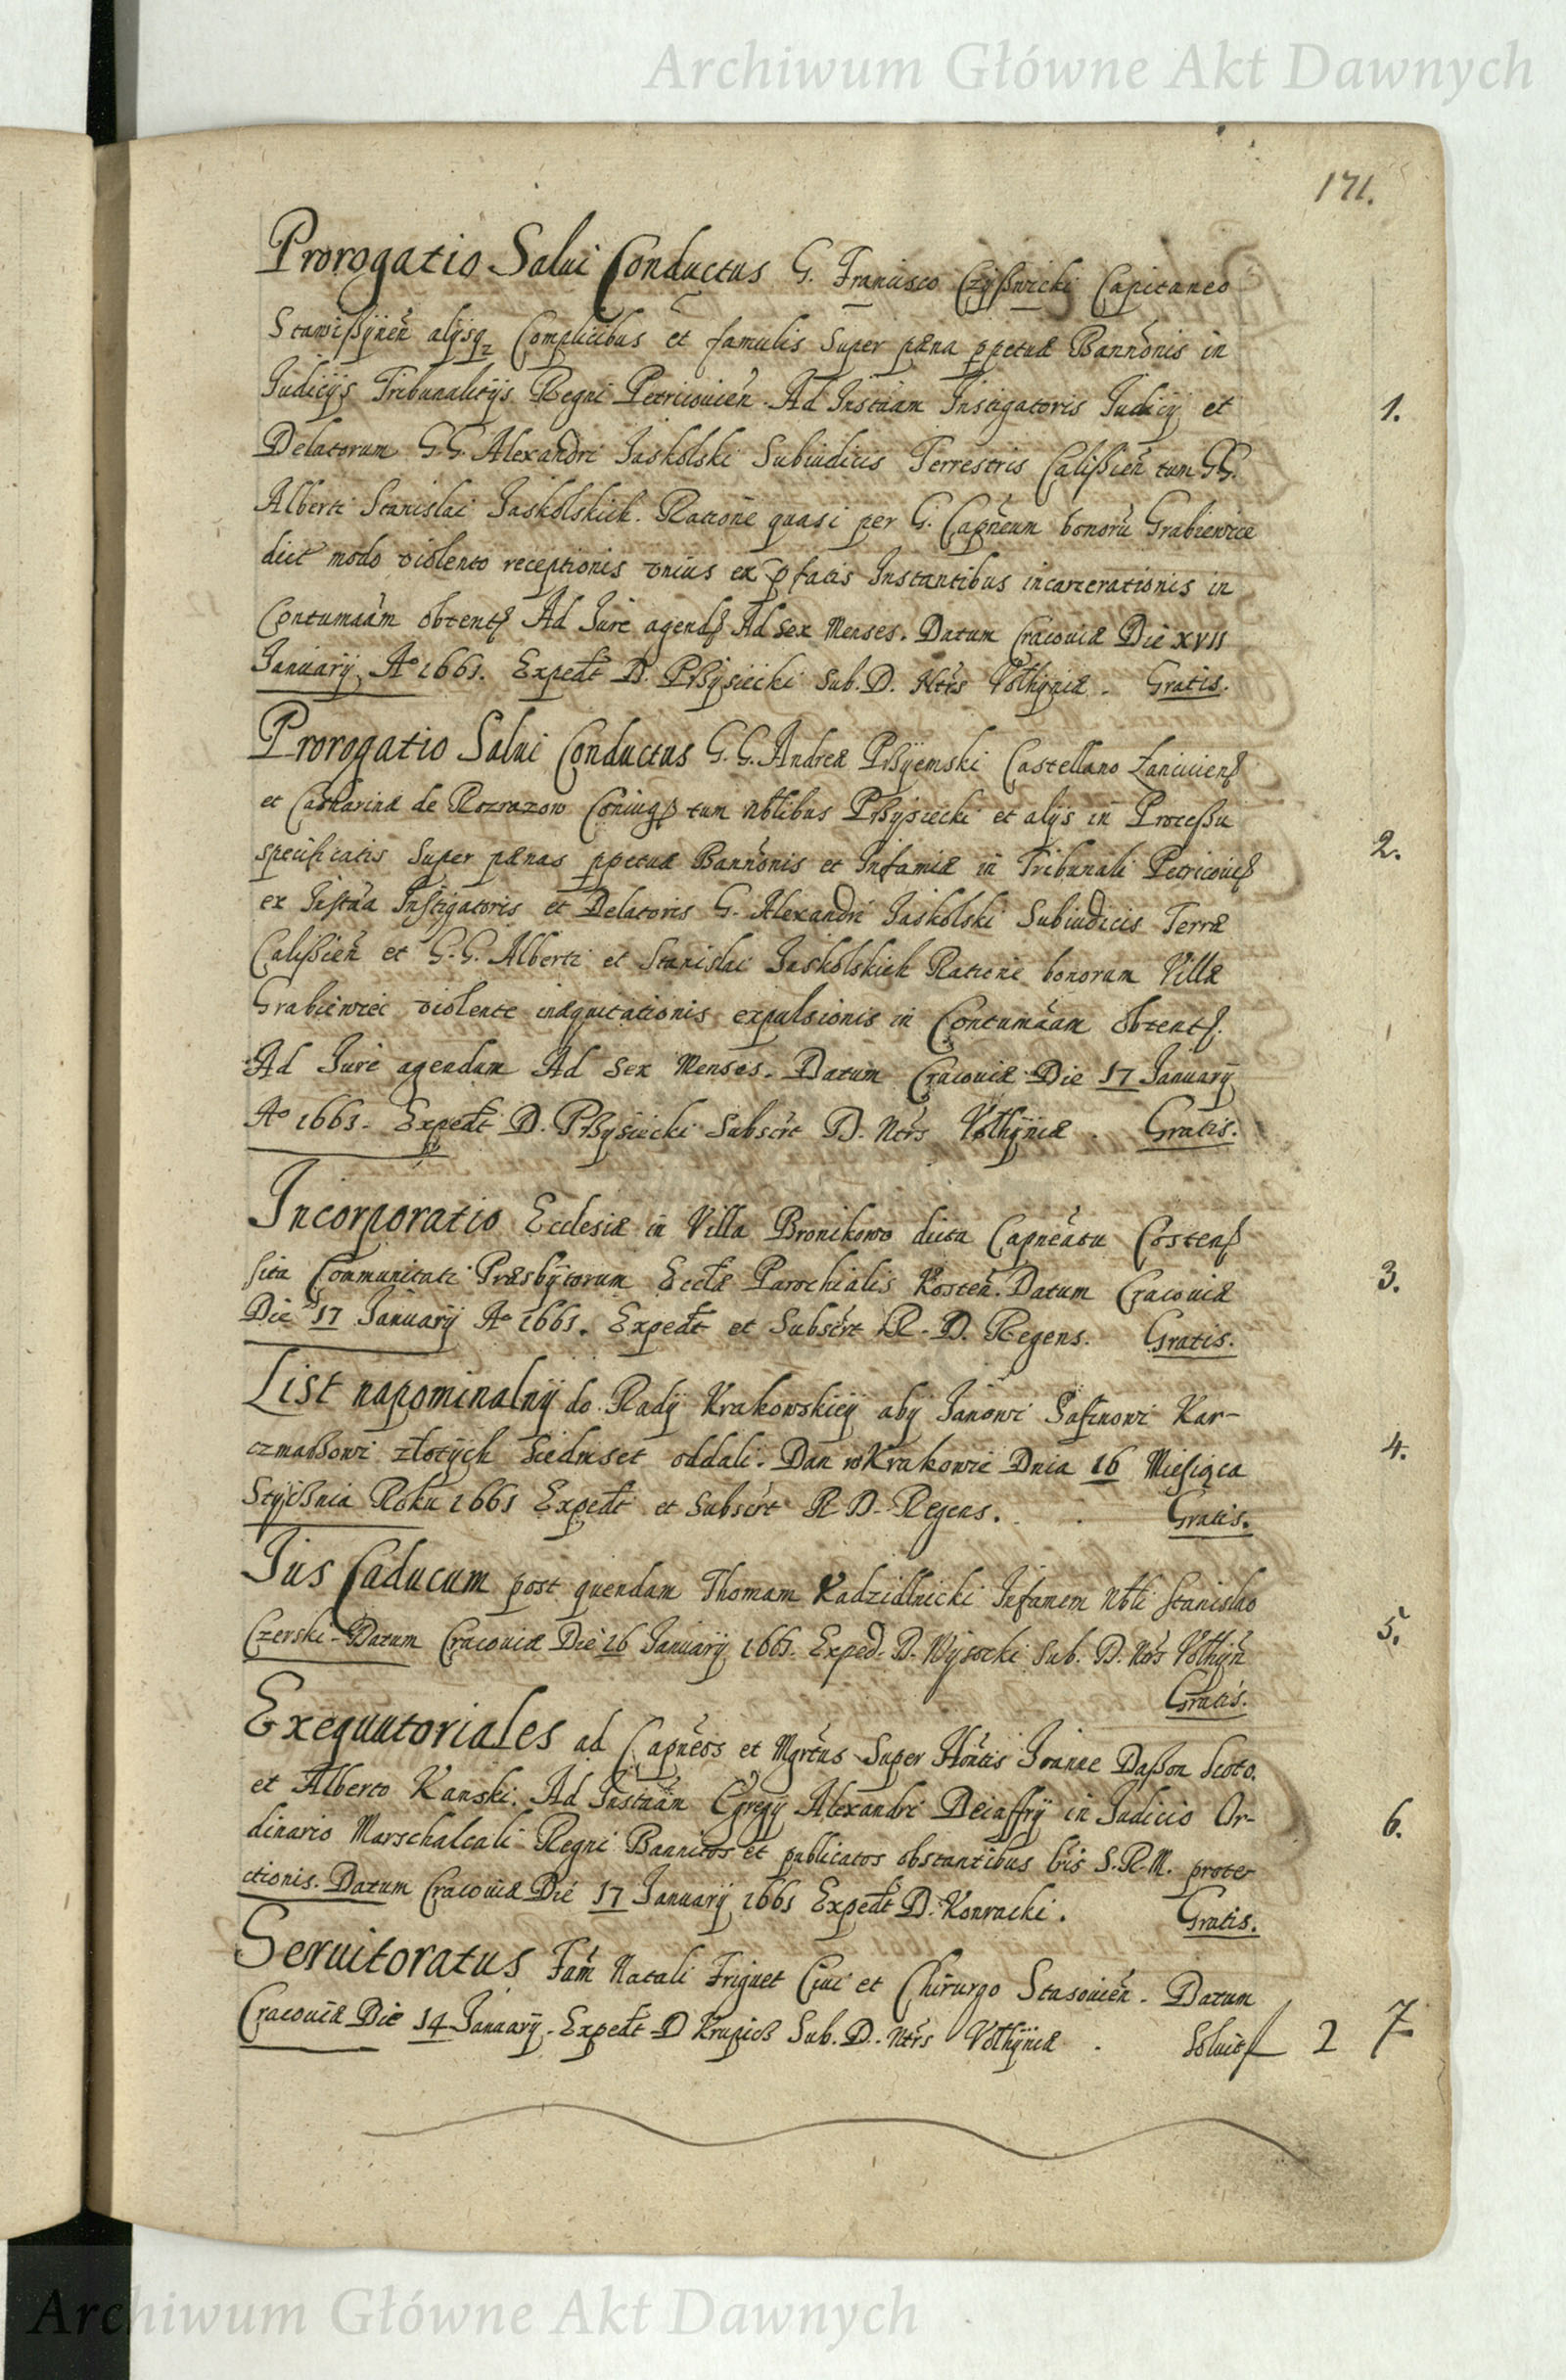 Archiwum Główne Akt Dawnych
171.
Prorogatio Salui Conductus G. Francisco Czyßwicki Capitaneo
Stawißÿnen̄ alijsq₂ Complicibus et famulis Super pæna ppetuæ Bann̄onis in
Judicÿs Tribunalitÿs Regni Petricouien̄. Ad Instãm Instigatoris Judicÿ et
1.
Delatorum G.G. Alexandri Jaskolski Subiudicis Terrestris Calißien̄ tum GG.
Alberti Stanislai Jaskolskich. Ratione quasi per G. Capn̄eum bonorũ Grabienice
dict modo violento receptionis vnius ex pfatis Instantibus incarcerationis in
Contumaãm obtentꝭ Ad Jure agendꝭ Ad Sex Menses. Datum Cracouiæ Die XVII
Januarÿ Aº 1661. Exped̄t D. Pßÿsiecki Sub. D. Ntr̄s Volhÿniæ. Gratis.
Prorogatio Salui Conductus G.G. Andreæ Pßÿemski Castellano Lanciciensꝭ
et Catharinæ de Rozrazow Coniugꝭ tum Nb̄libus Pßÿsiecki et alÿs in Proceßu
2.
specificatis Super pænas ppetuæ Bann̄onis et Infamiæ in Tribunali Petricouiensꝭ
ex Inst̄ia Instigatoris et Delatoris G. Alexandri Jaskolski Subiudicis Terræ
Calißien̄ et G.G. Alberti et Stanislai Jaskolskich Ratione bonorum Villæ
Grabienici violente inæquitationis expulsionis in Contumaãm obtentꝭ.
Ad Jure agendum Ad Sex Menses. Datum Cracouiæ Die 17 Januarÿ
Aº 1661. Exped̄t D. Pßÿsiecki Subscr̄t D. Ntr̄s Volhÿniæ. Gratis.
Incorporatio Ecclesiæ in Villa Bronikowo dicta Capn̄eatu Costensꝭ
sita Communitati Præsbÿtorum Eccl̄æ Parochialis Kosten̄. Datum Cracouiæ
3.
Die 17 Januarÿ Aº 1661. Exped̄t et Subscr̄t R. D. Regens. Gratis.
List napominalnÿ do Radÿ Krakowskieÿ abÿ Janowi Sasinowi Kar-
czmaßowi złotÿch siedmset oddali. Dan w Krakowie Dnia 16 Miesiąca
4.
Stÿcßnia Roku 1661 Exped̄t et Subscr̄t R D. Regens. Gratis.
Jus Caducum post quendam Thomam Kadzidlnicki Infamem Nb̄li Stanislao
Czerski. Datum Cracouiæ Die 16 Januarÿ 1661. Exped. D. Wÿsocki Sub. D. Ntr̄s Volhÿn̄
5.
Gratis.
Exequutoriales ad Capn̄eos et Mgr̄tus Super Hon̄tis Joanne Daßon Scoto.
et Alberto Kanski. Ad Instãm Egregÿ Alexandri Deiaffrÿ in Judicio Or-
6.
dinario Marschalcali Regni Bannitos et publicatos obstantibus Lr̄is S.R.M. prote-
ctionis. Datum Cracouiæ Die 17 Januarÿ 1661 Exped̄t D. Konracki. Gratis.
Seruitoratus Fam̄ Natali Friguet Ciui et Chirurgo Stasouien̄. Datum
Cracouiæ Die 14 Januarÿ. Exped̄t D Krupicß Sub. D. Ntr̄s Volhÿniæ. Soluit f 2 7
Archiwum Główne Akt Dawnych